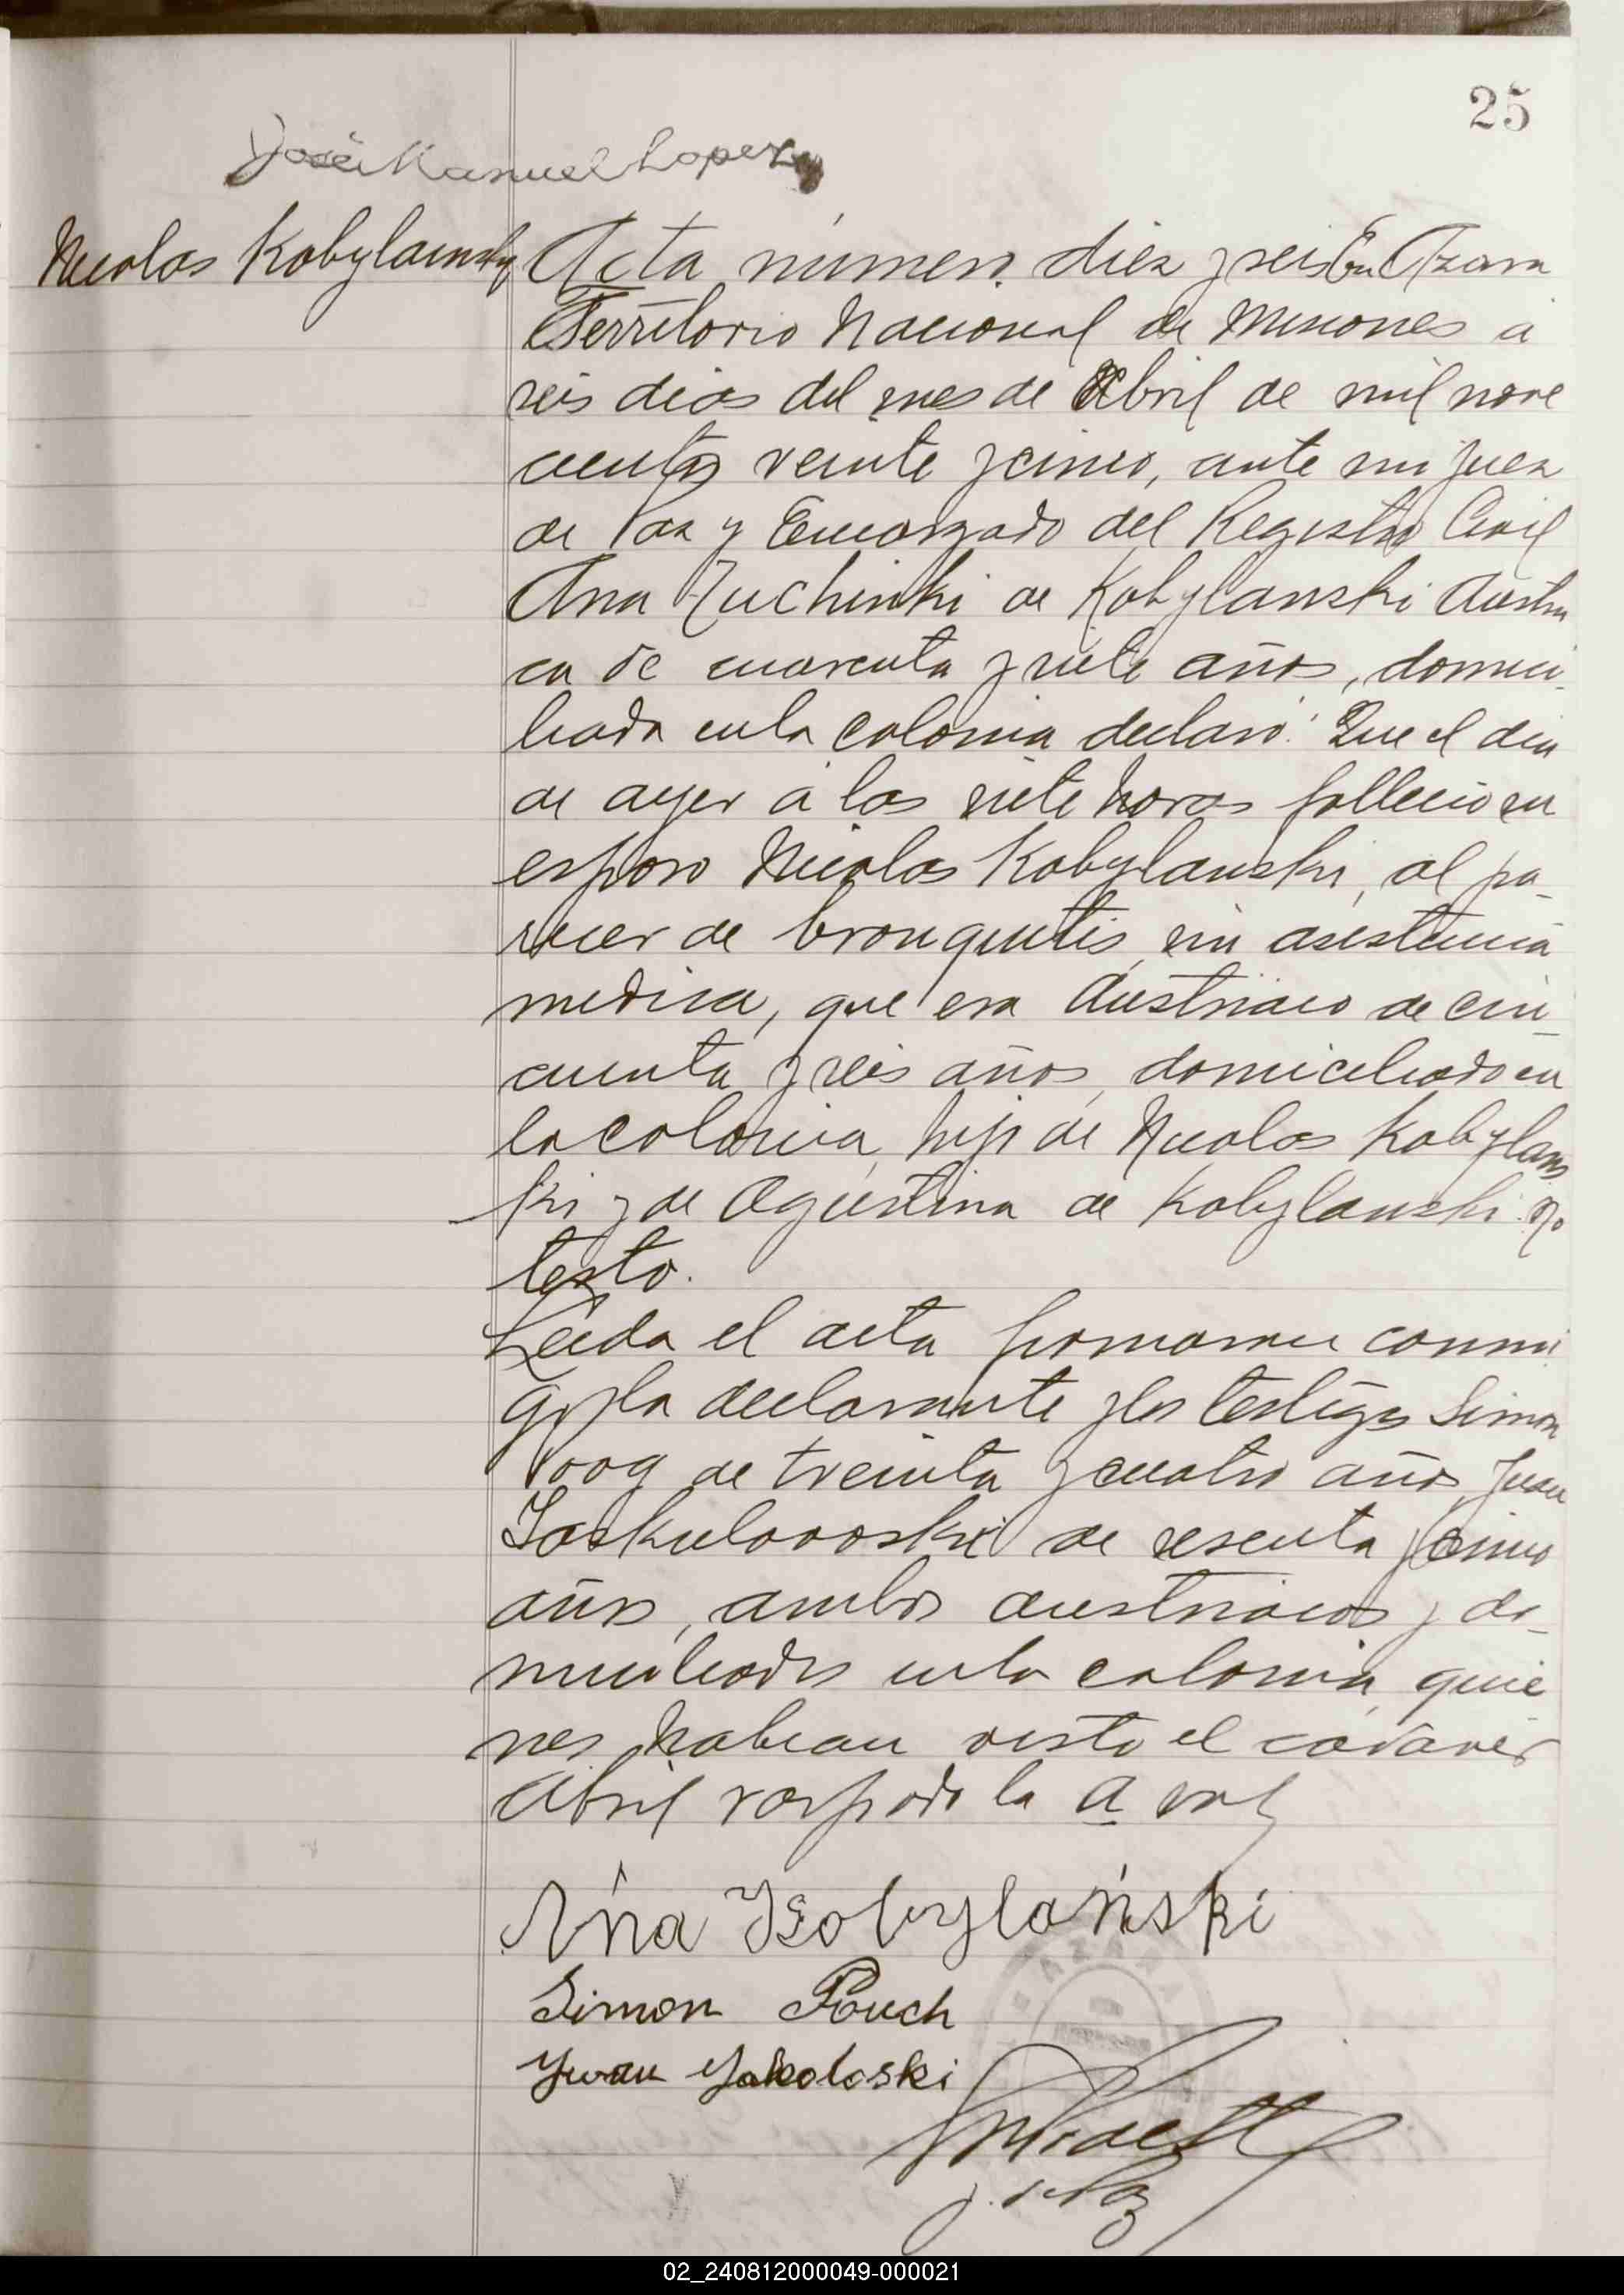 25
José Manuel Lopez
Nicolas Kobylainsky
Acta número diez y seis En Azara
Territorio Nacional de Misiones a
seis dias del mes de Abril de mil nove
cientos veinte y cinco, ante mi Juez
de Paz y Encargado del Registro Civil
Ana de Kobylanski Austria
ca de cuarenta y siete años, domici-
liada en la colonia declaró: Que el dia
de ayer a las siete horas fallecio su
esposo Nicolas Kobylanski, al pa-
recer de bronquitis, sin asistencia
medica, que era Austriaco de cin-
cuenta y seis años, domiciliado en
la colonia, hijo de Nicolas Kobylans
ki y de Agustina de Kobylanski. No
testo.
Leida el acta firmaron conmi
go, la declarante y los testigos Simon
Poog de treinta y cuatro años, Juan
Jaskulowoski de sesenta y cinco
años, ambos austriacos y do-
miciliados en la colonia, quie
nes habian visto el cadaver
Abril raspado la a val
Ana Kobylański
Simon Pouch
Jwan Jakoloski
J. de Paz
AZARA
02_240812000049-000021